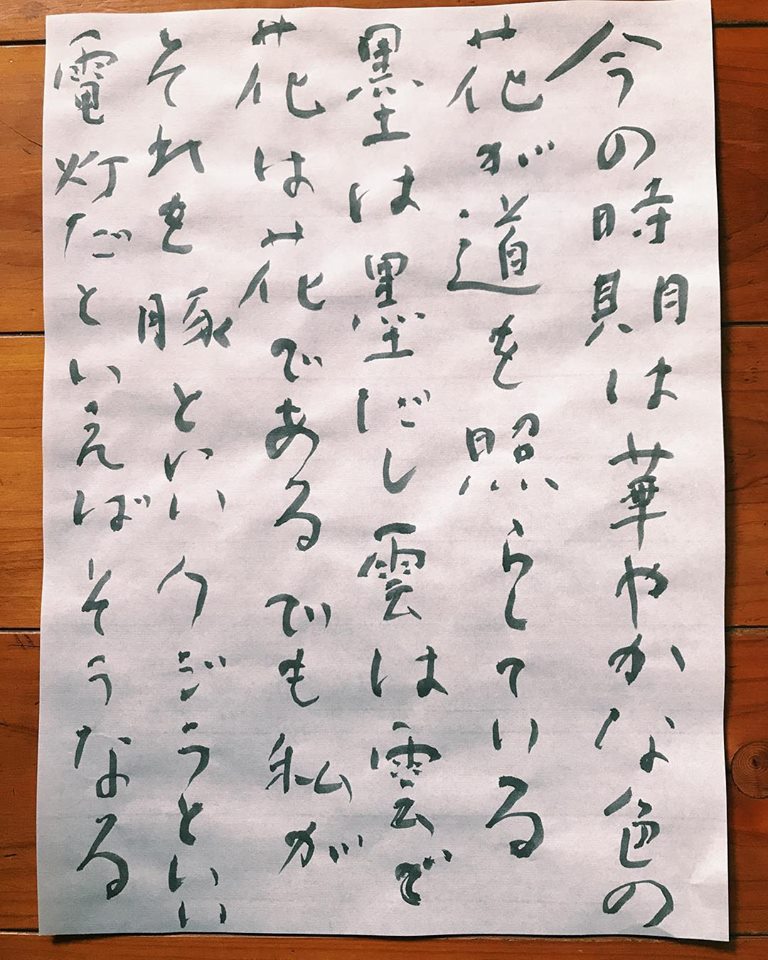 今の時期は華やかな色の
花が道を照らしている
墨は墨だし雲は雲で
花は花であるでも私が
それを豚といいクジラといい
電灯だといえばそうなる